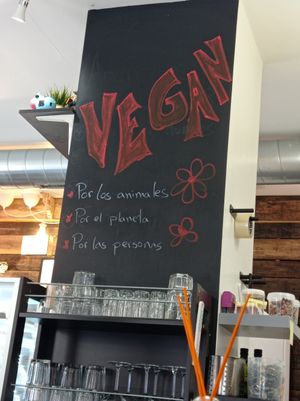 VEGAN
Por los animales
Por el planeta
Por las personas